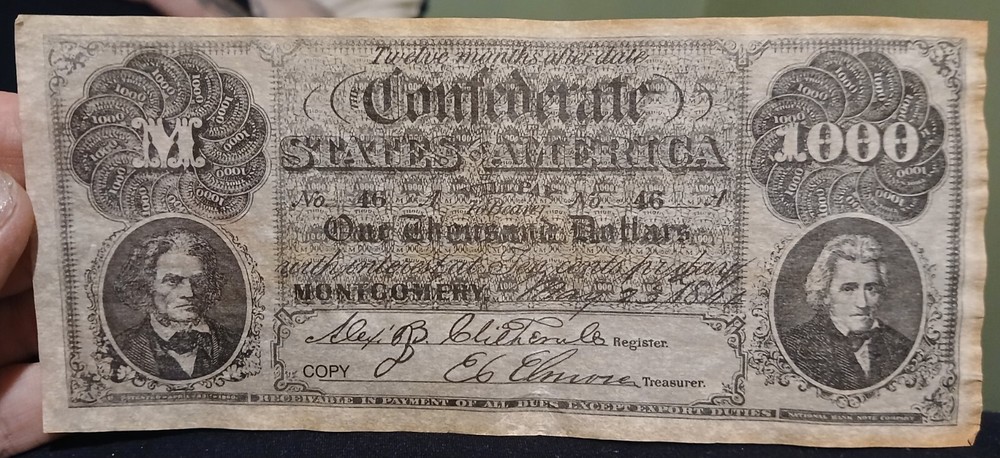 Twelve months after date
THE Confederate
STATES OF AMERICA
WILL PAY
No. 46 A To Bearer No. 46 A
One Thousand Dollars
with interest at Ten cents per day
MONTGOMERY, May 23 1861
M
1000
Alex. B. Clitherall Register.
COPY EC Elmore Treasurer.
RECEIVABLE IN PAYMENT OF ALL DUES EXCEPT EXPORT DUTIES
NATIONAL BANK NOTE COMPANY